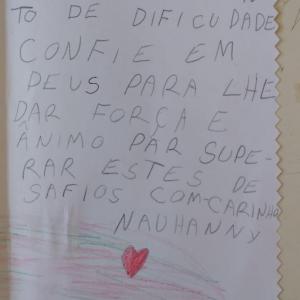 TO DE DIFICUDADE
CONFIE EM
DEUS PARA LHE
DAR FORÇA E
ÂNIMO PAR SUPE-
RAR ESTES DE
SAFIOS COM-CARINHO
NAUHANNY